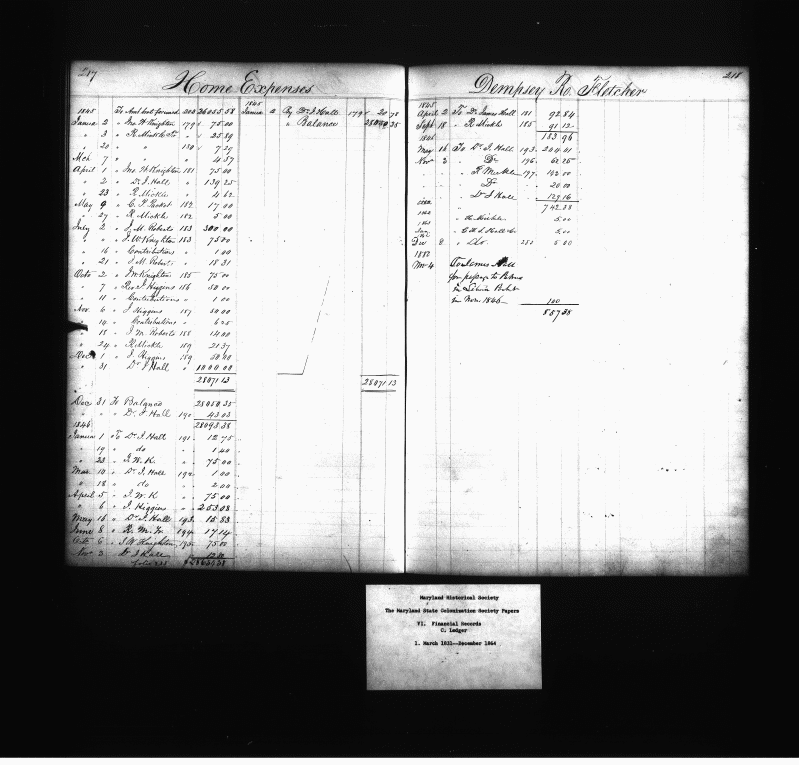 217
Home Expenses
1845 To Amt bot forward 200 26055.58
Janua 2 " Jno H Knighton 179 75.00
" 3 " R Mickle 25.89
" 20 " " 180 7.29
Mch 7 " " " 4.57
April 1 " Jno W Knighton 181 75.00
" 2 " Dr J Hall " 139.25
" 23 " R Mickle " 4.62
May 9 " 182 17.00
" 27 " R Mickle 182 5.00
July 2 " J M Roberts 183 300.00
" " " J W Knighton 183 75.00
" 16 " Contributions " 1.00
" 21 " J M Roberts " 18.31
Octo 2 " J W Knighton 185 75.00
" 7 " Rev J Higgins 186 50.00
" 11 " Contributions " 1.00
Nov 6 " J Higgins 187 50.00
" 14 " Contributions " 6.25
" 18 " J M Roberts 188 14.00
" 24 " R Mickle 189 21.37
Dec 1 " J Higgins 189 50.00
" 31 " Dr J Hall " 1000.00
28071.13
Dec 31 To Balance 28050.35
" " " Dr J Hall 190 43.03
28093.38
1846
Janua 1 To Dr J Hall 191 12.75
" 19 " do " 1.40
" 23 " J. W. K. " 75.00
Mar 10 " Dr J Hall 192 1.00
" 18 " do " 2.00
April 5 " J. W. K " 75.00
" 6 " J. Higgins " 253.08
May 15 " Dr J Hall 193 15.83
June 8 " 194 17.14
Octo 6 " J W Knighton 195 75.00
Nov 3 " Dr J Hall
folio 235
1845
Janua 2 By Dr J Hall 179 20.78
" Balance 28050.35
28071.13
218
Dempsey R. Fletcher
1845
April 2 To Dr James Hall 181 92.84
Sept 18 " R Mickle 185 91.12
183.96
1846
May 16 To Dr J. Hall 193 204.41
Nov 3 " Do 196 62.25
" R Mickle 197 142.00
" Do 20.00
" Dr J Hall 129.16
742.38
" R Mickle 5.00
5.00
Dec 8 " do 5.00
1852
Nov 4 To James Hall
for passage to Palmas
in
in Nov. 1846 100
857.38
Maryland Historical Society
The Maryland State Colonization Society Papers
VI. Financial Records
C. Ledger
1. March 1831--December 1864